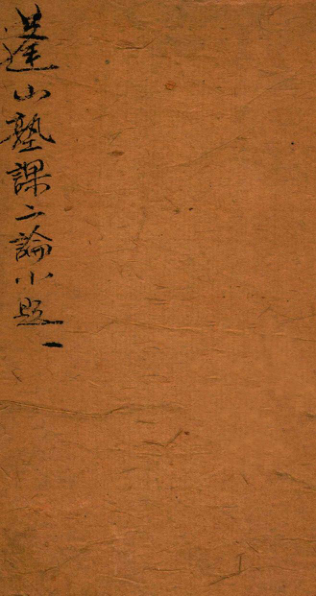 蓬山塾課二論小題一